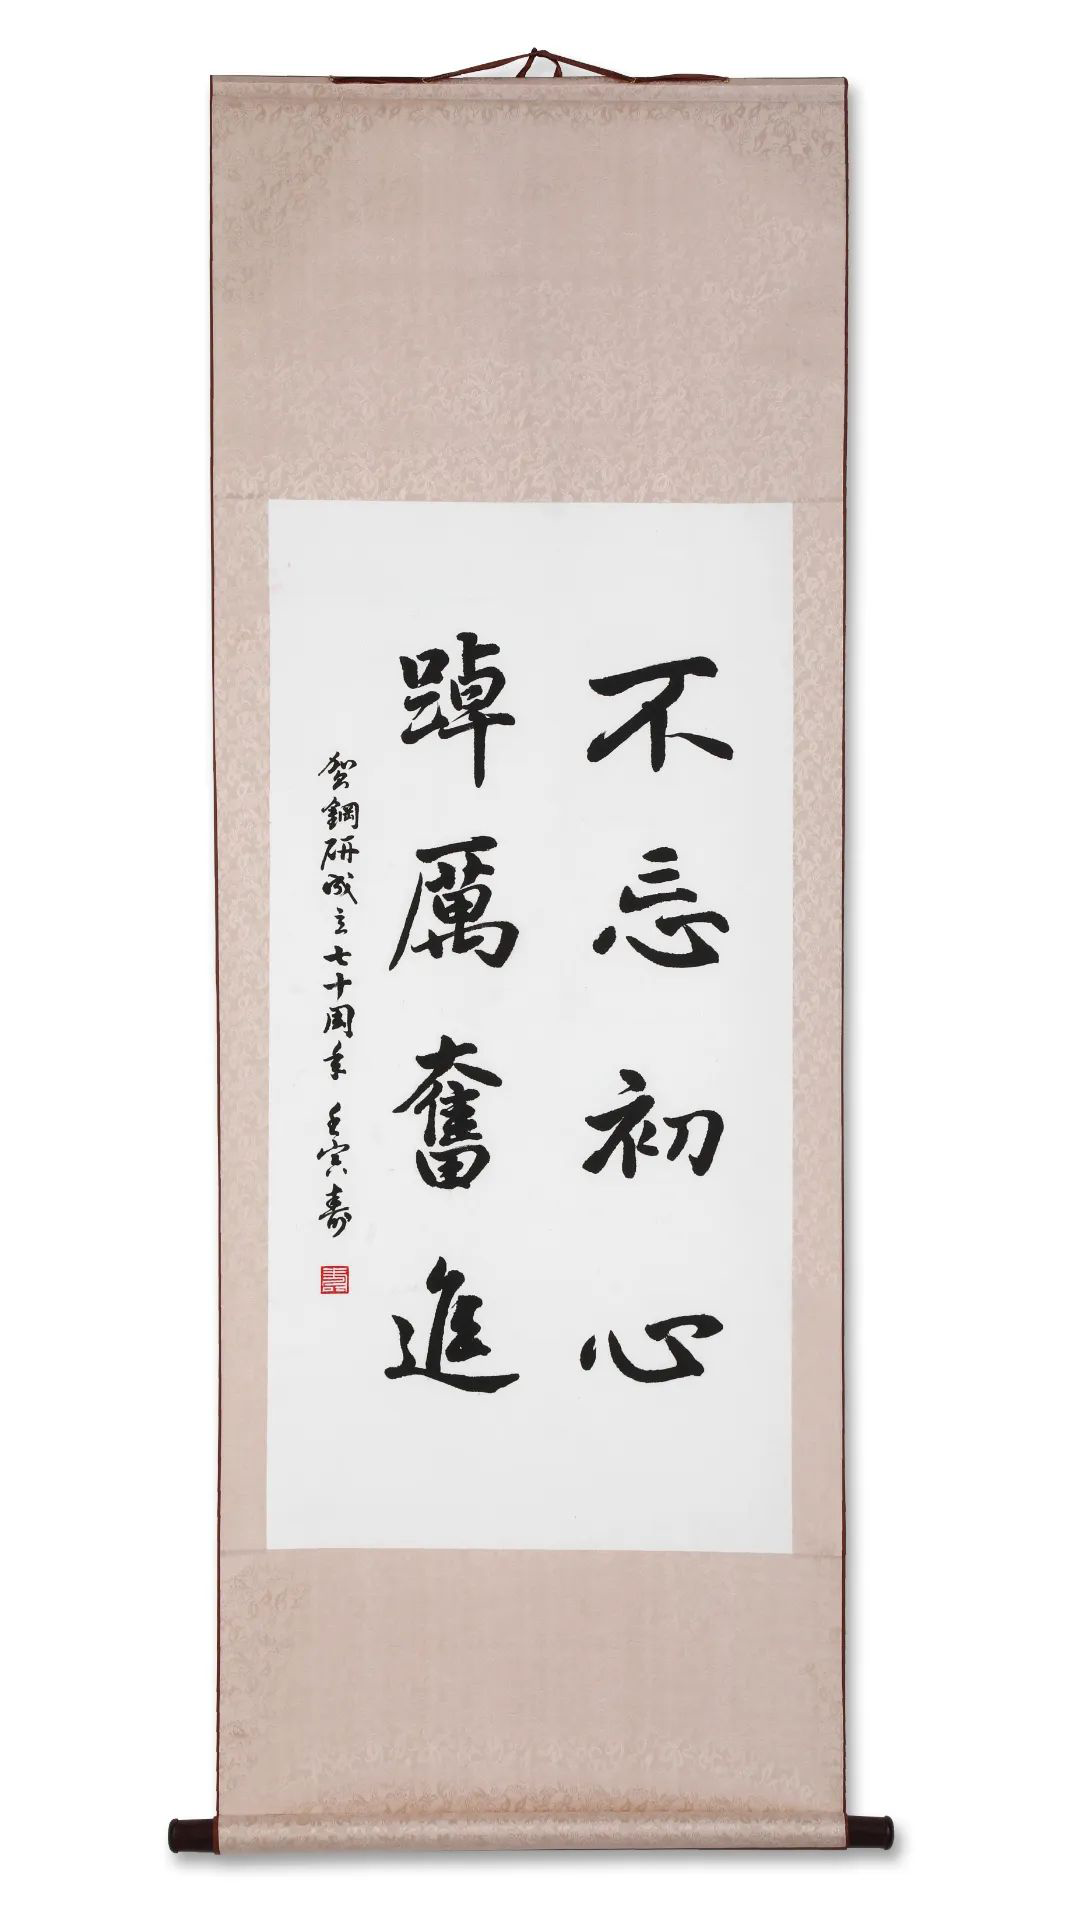 不忘初心
踔厲奮進
贺鋼研成立七十周年 壬寅 壽